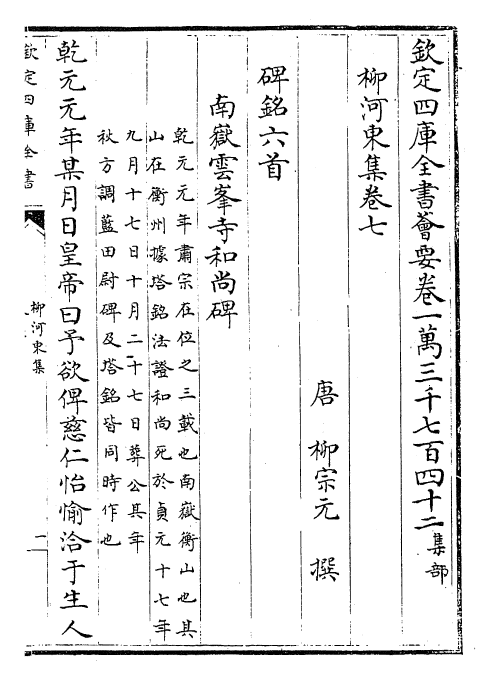 欽定四庫全書薈要卷一萬三千七百四十二集部
柳河東集卷七
唐 柳宗元 撰
碑銘六首
南嶽雲峯寺和尚碑
乾元元年肅宗在位之三載也南嶽衡山也其
山在衡州據塔銘法證和尚死於貞元十七年
九月十七日十月二十七日葬公其年
秋方調藍田尉碑及塔銘皆同時作也
乾元元年某月日皇帝曰予欲俾慈仁怡愉洽于生人
欽定四庫全書
柳河東集